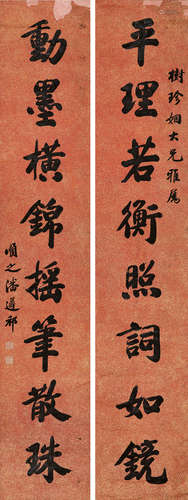 樹珍姻大兄雅屬
平理若衡照詞如鏡
動墨橫錦搖筆散珠
順之潘遵祁